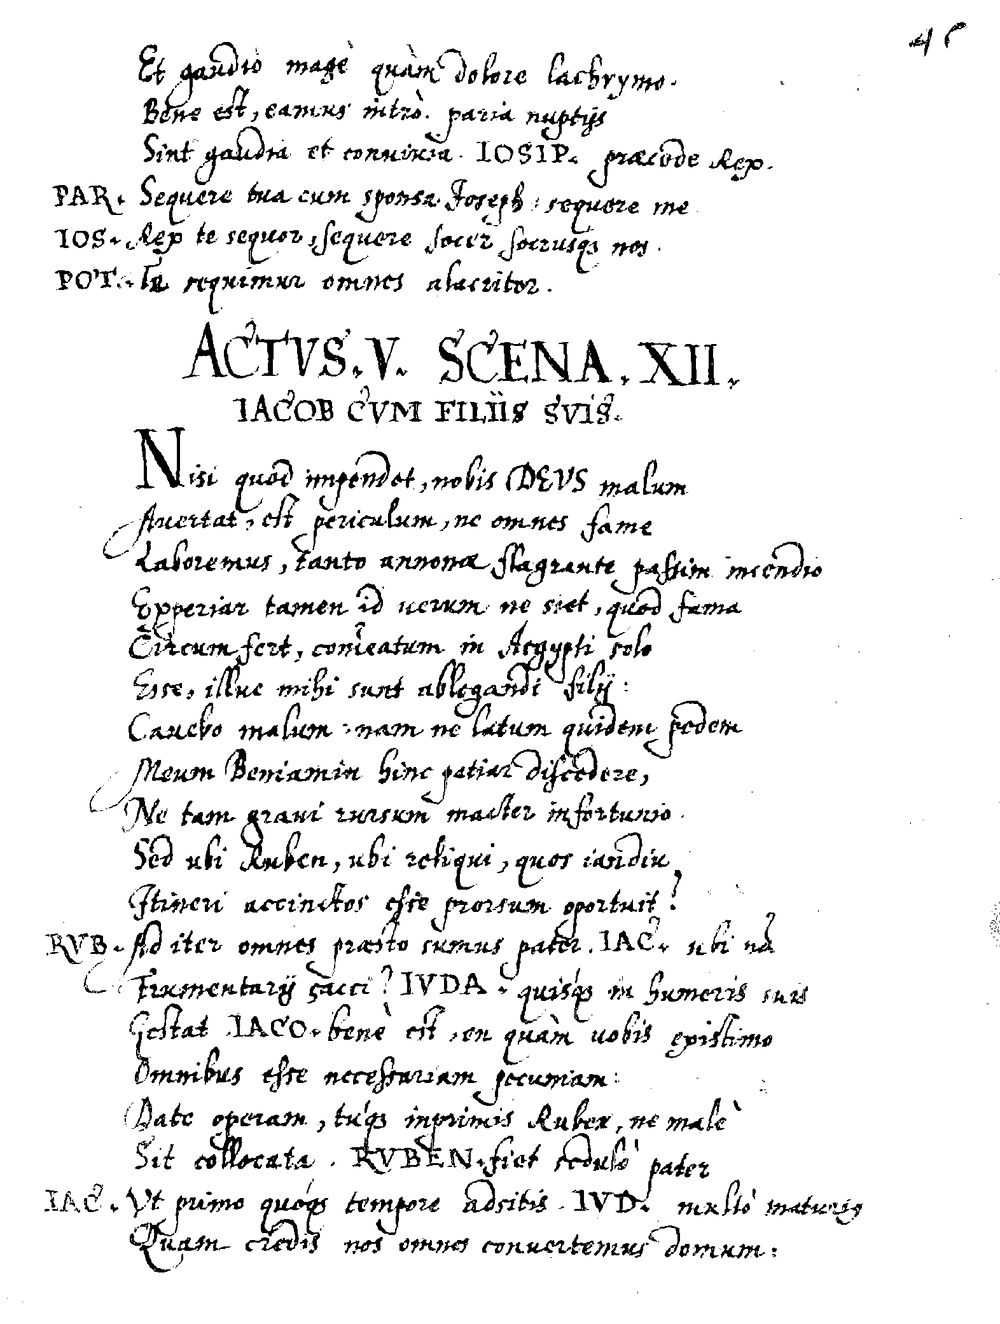 45
Et gaudio magè quàm dolore lachrymo.
Bene est, eamus intrò. paria nuptijs
Sint gaudia et conuiuia. IOSIP. præcede Rex.
PAR. Sequere tua cum sponsa Joseph: sequere me
IOS. Rex te sequor, sequere socer socrusq́; nos.
POT. Te sequimur omnes alacriter.
ACTVS. V. SCENA. XII.
IACOB CVM FILIIS SVIS.
Nisi quod impendet, nobis DEVS malum
Auertat, est periculum, ne omnes fame
Laboremus, tanto annonæ flagrante passim incendio
Experiar tamen id uerum ne siet, quod fama
Circumfert, comeatum in Aegypti solo
Esse, illuc mihi sunt ablegandi filij:
Cauebo malum: nam ne latum quidem pedem
Meum Beniamin hinc patiar discedere,
Ne tam graui rursum macter infortunio.
Sed ubi Ruben, ubi reliqui, quos iandiu
Itineri accinctos esse prorsum oportuit?
RVB. Ad iter omnes præsto sumus pater. IAC. ubi nā
Frumentarij sacci? IVDA. quisq́; in humeris suis
Gestat IACO. benè est, en quàm uobis existimo
Omnibus esse necessariam pecuniam:
Date operam, tuq́; inprimis Ruben, ne malè
Sit collocata. RVBEN. fiet sedulò pater
IAC. Vt primo quoq́; tempore adsitis. IVD. multò maturiq
Quam credis nos omnes conuertemus domum: